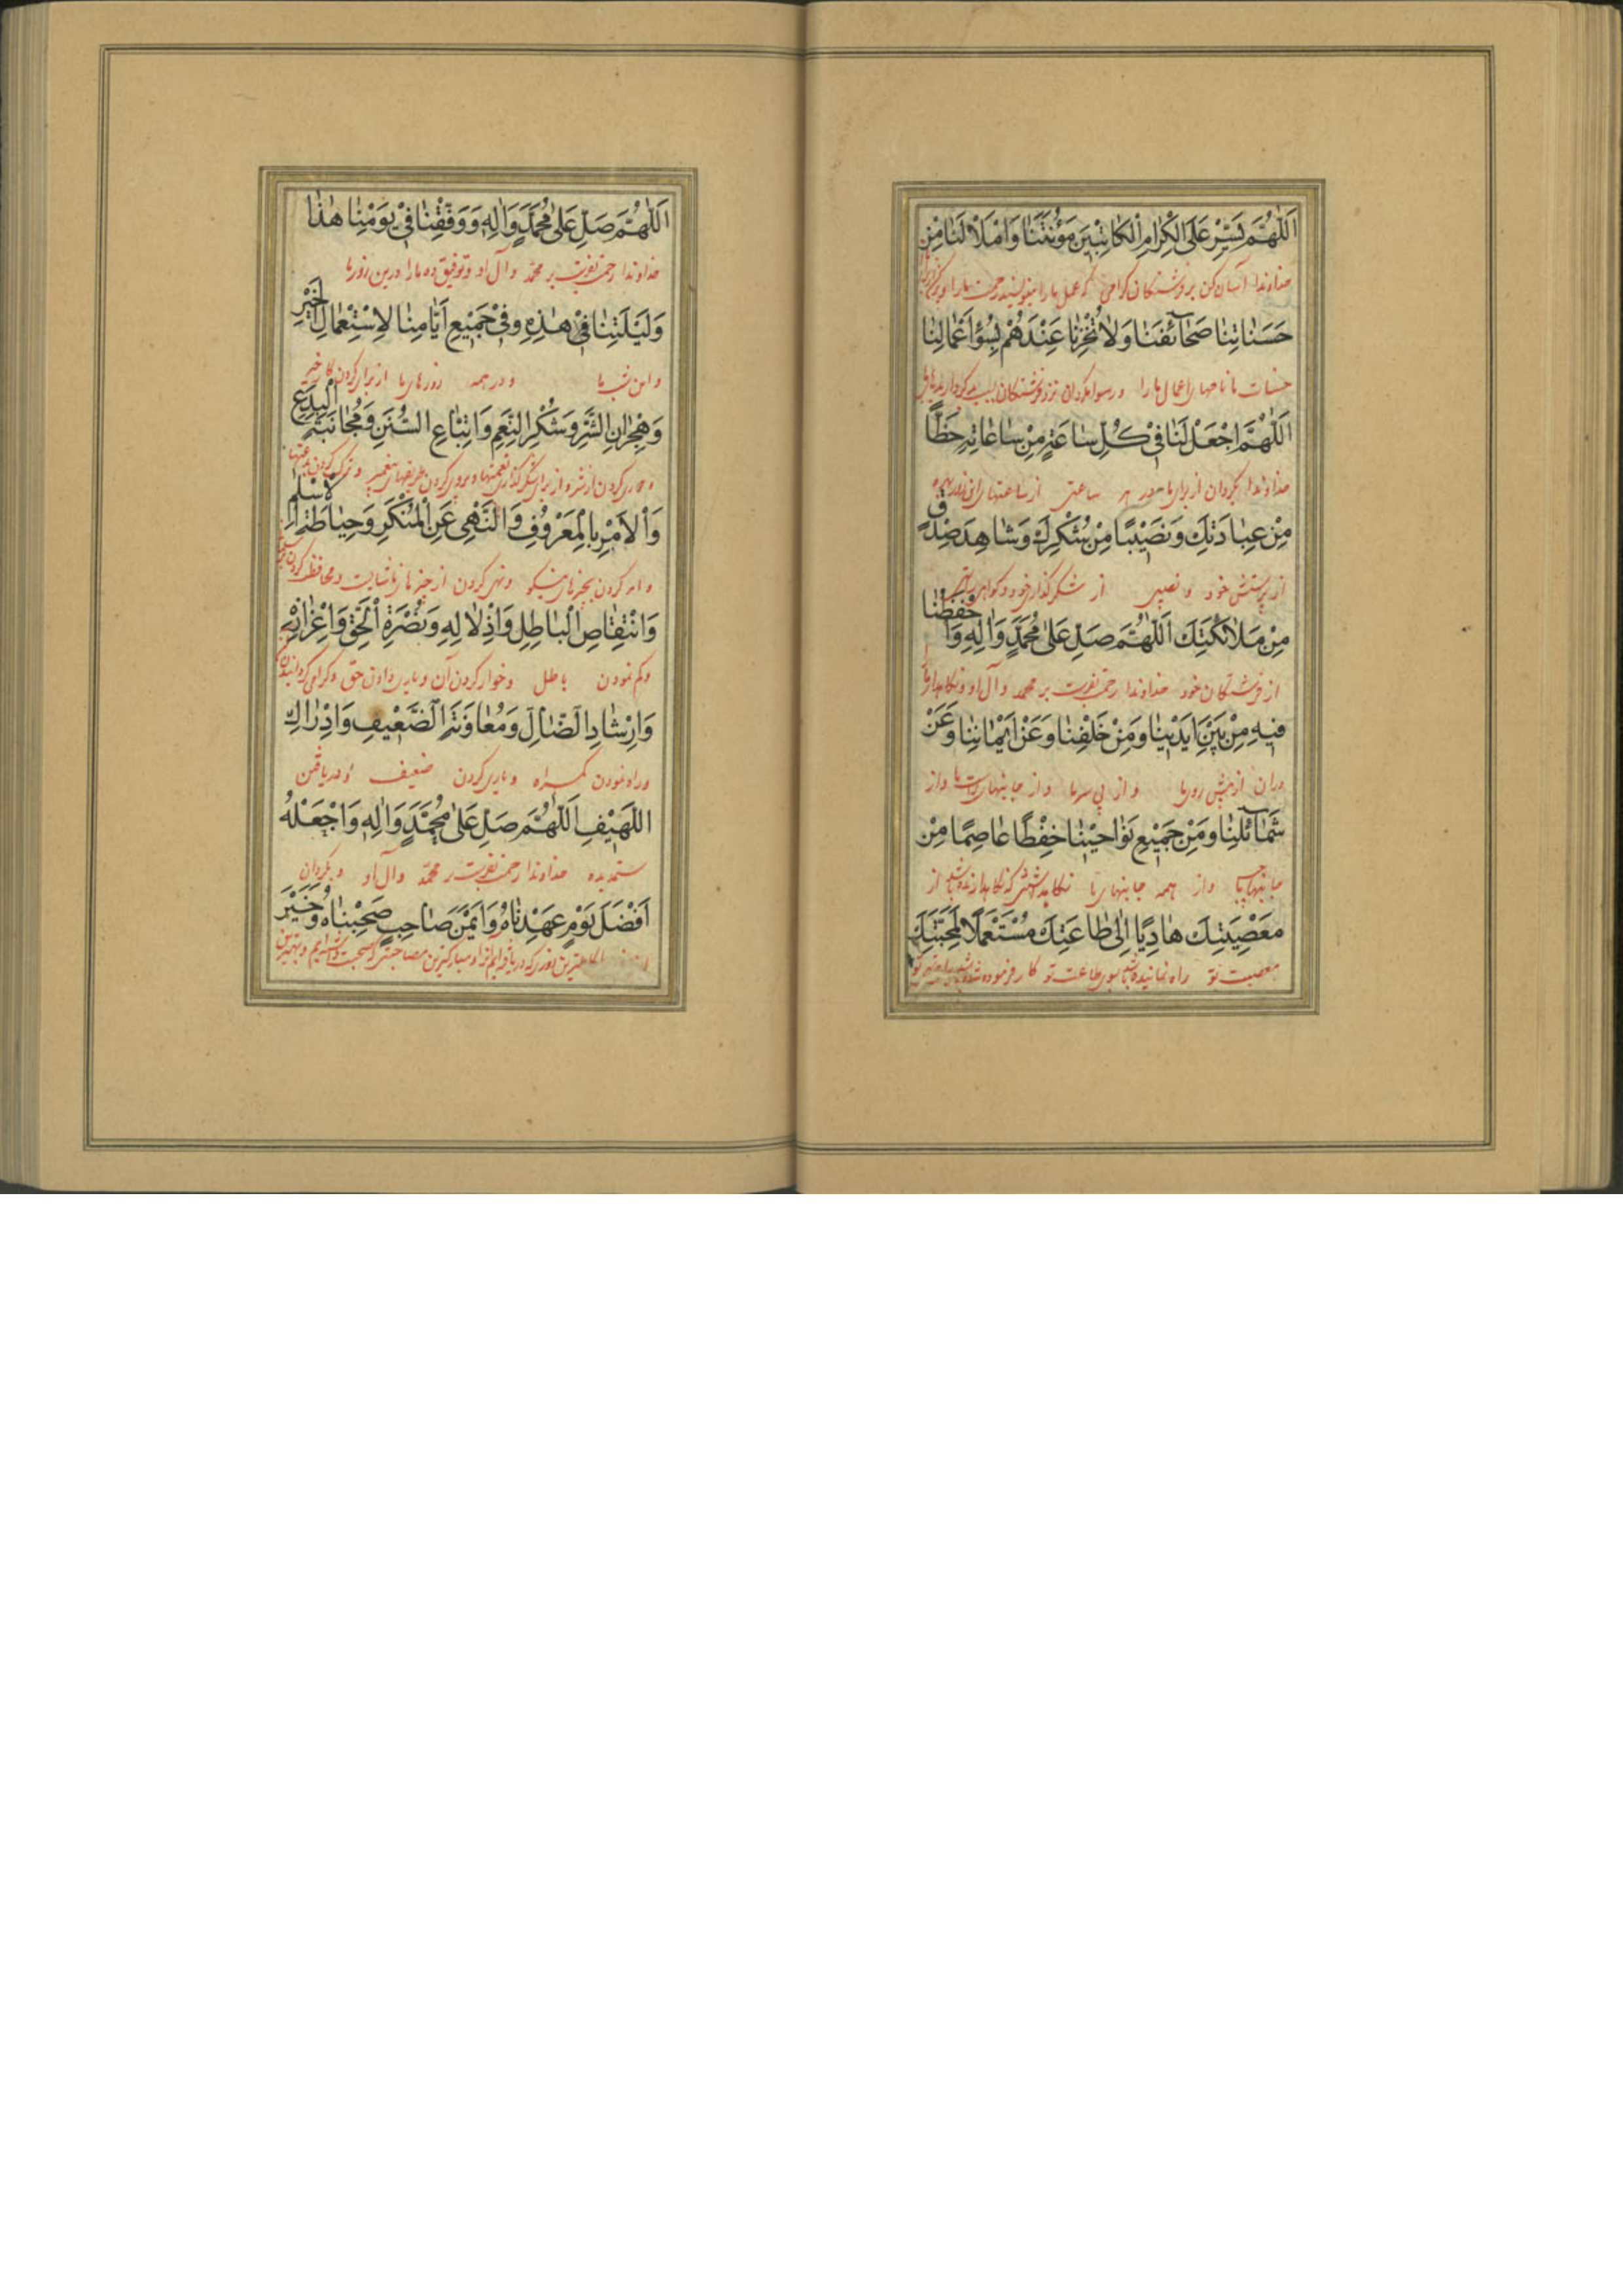 اَللّٰهُمَّ يَسِّرْ عَلَى الْكِرامِ الْكاتِبينَ مَؤُنَتَنا وَامْلَأْ لَنا مِنْ
خداوندا آسان کن بر فرشتگان کرامی که عمل ما را مینویسند زحمت ما را و پر کن از برای ما
حَسَناتِنا صَحآئِفَنا وَلا تُخْزِنا عِنْدَهُمْ بِسُوۤءِ اَعْمالِنا
حسنات ما نامهای اعمال ما را و رسوا مکردان نزد فرشتکان بسبب کردار بدیهای ما
اَللّٰهُمَّ اجْعَلْ لَنا فى كُلِّ ساعَةٍ مِنْ ساعاتِهِ حَظًّا
خداوندا بکردان از برای ما در هر ساعتی از ساعتهای این روز بهره
مِنْ عِبادَتِكَ وَنَصيبًا مِنْ شُكْرِكَ وَشاهِدَ صِدْقٍ
از پرستش خود و نصیبی از شکر کذاری خود و کواهی راستی
مِنْ مَلآئِكَتِكَ اَللّٰهُمَّ صَلِّ عَلى مُحَمَّدٍ وَالِهِ وَاحْفَظْنا
از فرشتکان خود خداوندا رحمت بفرست بر محمد و آل او و نکاهدار ما را
فيهِ مِنْ بَيْنِ اَيْدينا وَمِنْ خَلْفِنا وَعَنْ اَيْمانِنا وَعَنْ
در آن از پیش روی ما و از پی سر ما و از جانبهای راست ما و از
شَمآئِلِنا وَمِنْ جَميعِ نَواحينا حِفْظًا عاصِمًا مِنْ
جانبهای چپ ما و از همه جانبهای ما نکاهداشتنی که نکاهدارنده باشد از
مَعْصِيَتِكَ هادِيًا اِلى طاعَتِكَ مُسْتَعْمَلًا لِمَحَبَّتِكَ
معصیت تو راه نماینده باشد بسوی طاعت تو کار فرموده شده باشد برای محبت تو
اَللّٰهُمَّ صَلِّ عَلى مُحَمَّدٍ وَالِهِ وَوَفِّقْنا فى يَوْمِنا هٰذا
خداوندا رحمت بفرست بر محمد و آل او و توفیق ده ما را در این روز ما
وَلَيْلَتِنا هٰذِهِ وَفى جَميعِ اَيّامِنا لِاسْتِعْمالِ الْخَيْرِ
و این شب ما و در همه روزهای ما از برای کردن کار خیر
وَهِجْرانِ الشَّرِّ وَشُكْرِ النِّعَمِ وَاتِّباعِ السُّنَنِ وَمُجانَبَةِ الْبِدَعِ
و دوری کردن از شر و از برای شکر کذاری نعمتها و پیروی کردن طریقهای پیغمبر و ترک کردن بدعتها
وَالْاَمْرِ بِالْمَعْرُوفِ وَالنَّهْىِ عَنِ الْمُنْكَرِ وَحِياطَةِ الْاِسْلامِ
و امر کردن بچیزهای نیکو و نهی کردن از چیزهای ناشایست و محافظت کردن
وَانْتِقاصِ الْباطِلِ وَاِذْلالِهِ وَنُصْرَةِ الْحَقِّ وَاِعْزازِهِ
و کم نمودن باطل و خوار کردن آن و یاری دادن حق و کرامی کردانیدن
وَاِرْشادِ الضّآلِّ وَمُعاوَنَةِ الضَّعيفِ وَاِدْراكِ
و راه نمودن کمراه و یاری کردن ضعیف و دریافتن
اللَّهيفِ اَللّٰهُمَّ صَلِّ عَلى مُحَمَّدٍ وَالِهِ وَاجْعَلْهُ
ستمدیده خداوندا رحمت بفرست بر محمد و آل او و بکردان
اَفْضَلَ يَوْمٍ عَهِدْناهُ وَاَيْمَنَ صاحِبٍ صَحِبْناهُ وَخَيْرَ
روزی که دریافته ایم او را و مبارکترین مصاحبی که صحبت داشته ایم و بهترین